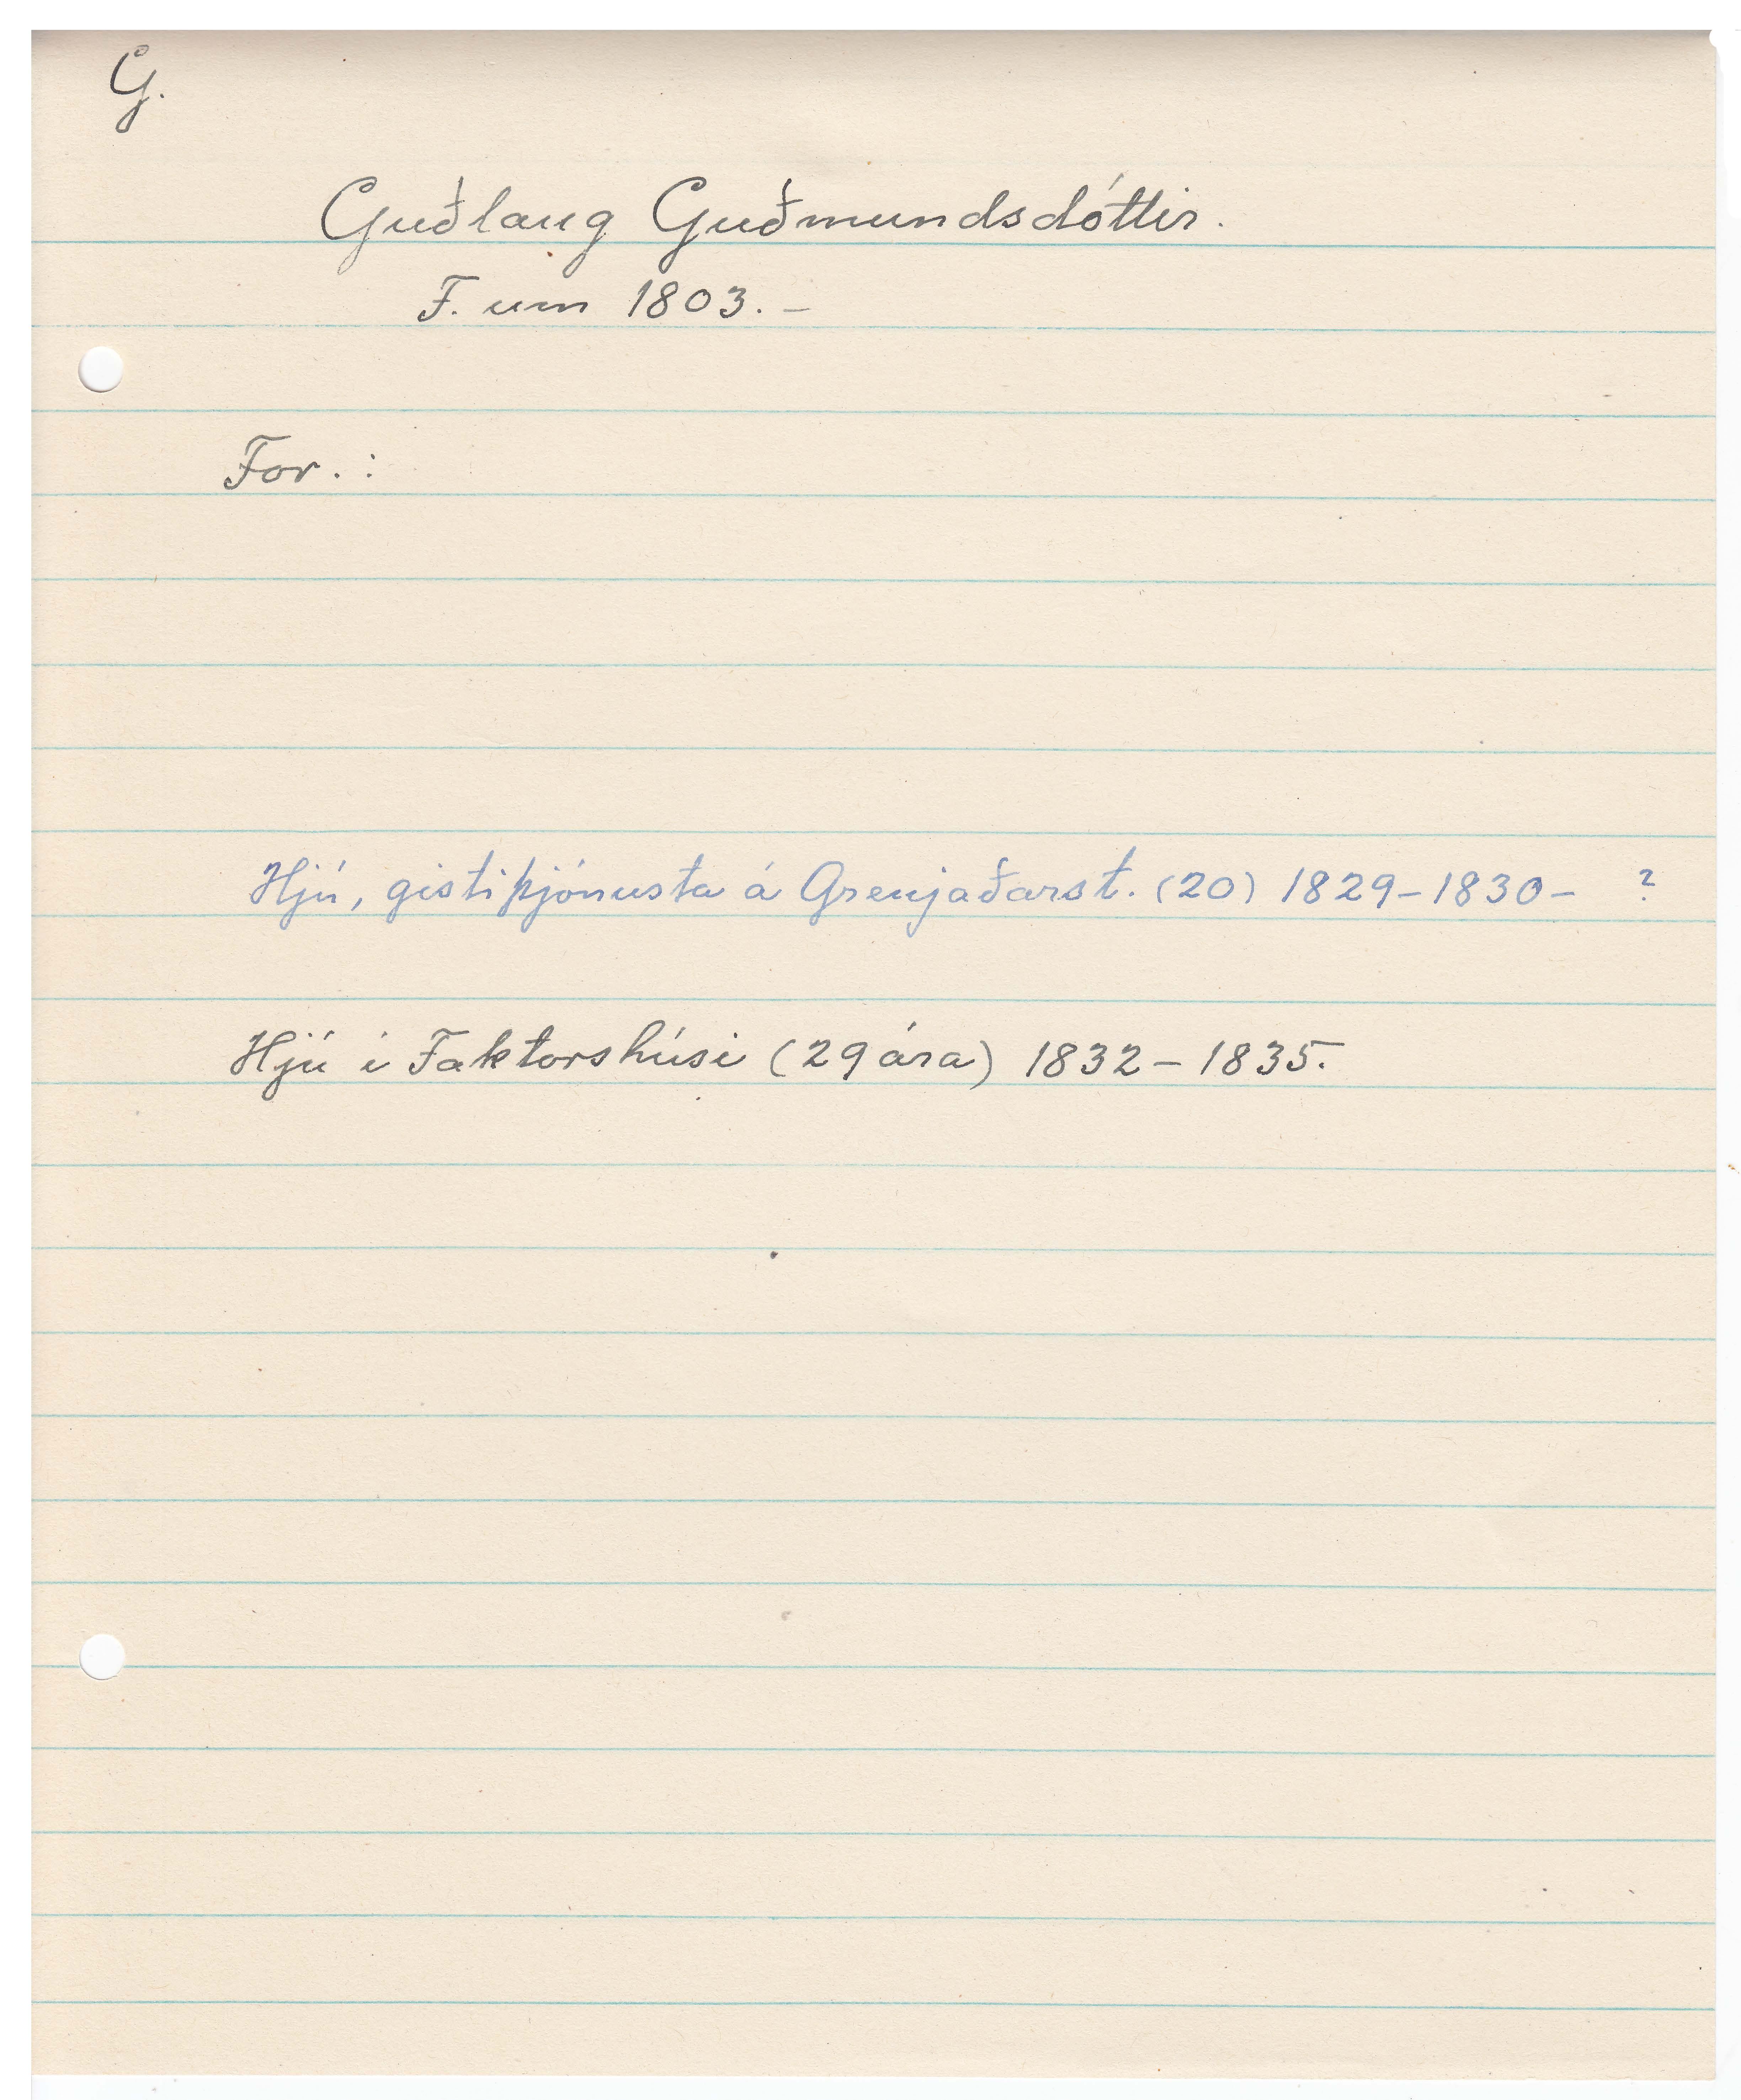 G.
Guðlaug Guðmundsdóttir.
F. um 1803. -
For. :
Hjú, gistiþjónusta á Grenjaðarst. (20) 1829-1830- ?
Hjú í Faktorshúsi (29 ára) 1832 - 1835.